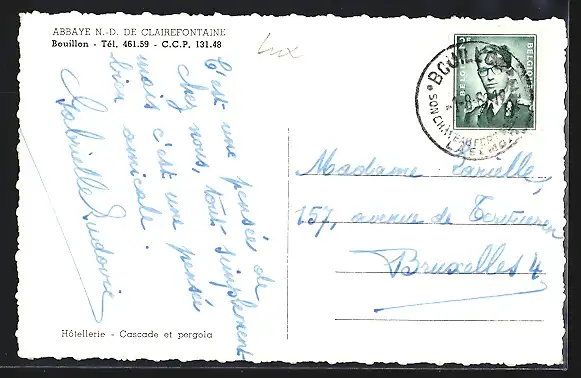 ABBAYE N.-D. DE CLAIREFONTAINE
Bouillon - Tél. 461.59 - C.C.P. 131.48
Lux
C'est une pensée de
chez nous, tout simplement
mais c'est une pensée
bien amicale.
Gabrielle Ludovic
Hôtellerie - Cascade et pergola
BELGIQUE
BELGIE
BOUILLON
Madame
157, avenue de Tervueren
Bruxelles 4